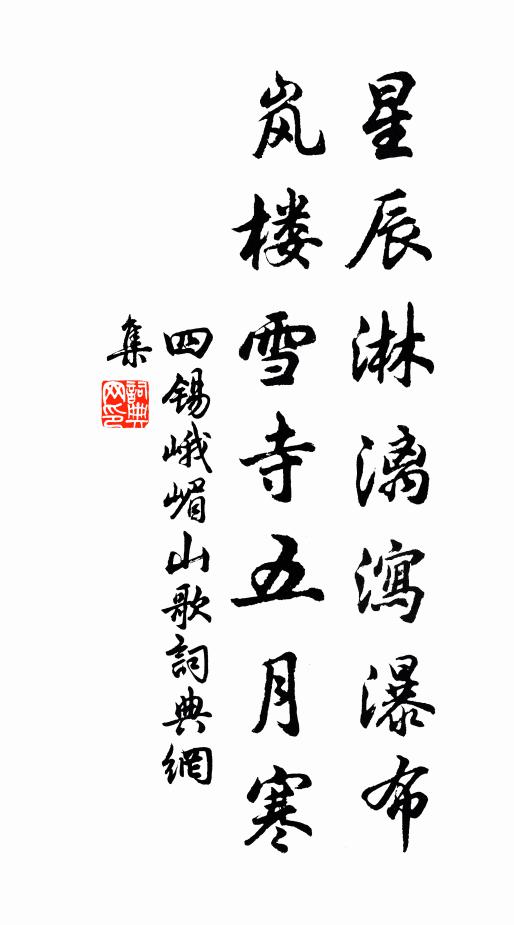 星辰淋漓瀉瀑布
岚楼雪寺五月寒
四锡峨嵋山歌詞典網
集
詞典
网印